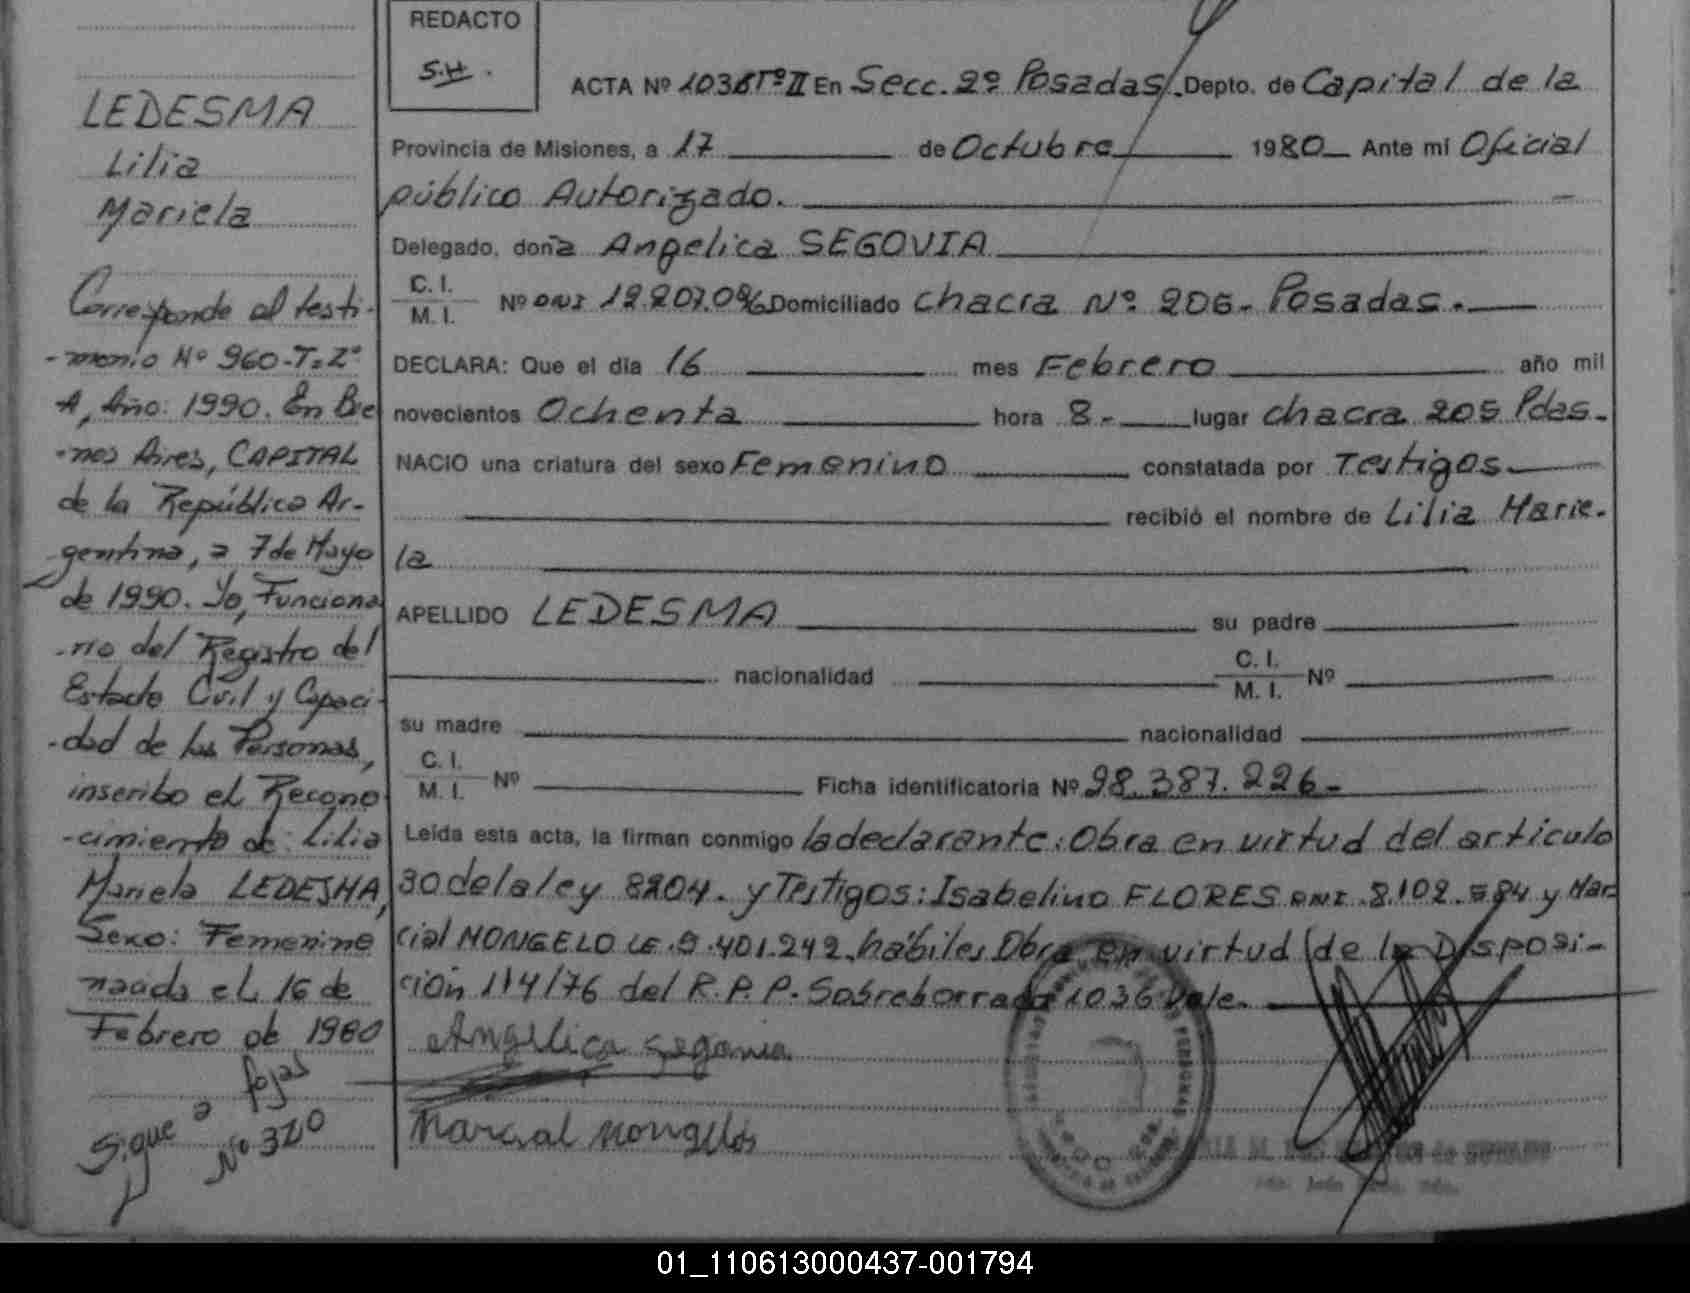 REDACTO
S.H.
LEDESMA
Lilia
Mariela
Corresponde al testi-
-monio Nº 960-T:2º
A, Año: 1990. En Bue
-nos Aires, CAPITAL
de la República Ar-
gentina, a 7 de Mayo
de 1990. Yo, Funciona
-rio del Registro del
Estado Civil y Capaci-
-dad de las Personas,
inscribo el Recono
-cimiento de: Lilia
Mariela LEDESMA,
Sexo: Femenino
nacida el 16 de
Febrero de 1980
Sigue a fojas
Nº 320
ACTA Nº 1036 Tº II En Secc. 2º Posadas/. Depto. de Capital de la
Provincia de Misiones, a 17 de Octubre 1980 Ante mi Oficial
público Autorizado.
Delegado, doña Angelica SEGOVIA
C. I.
M. I. Nº DNI Domiciliado chacra Nº. 206- Posadas.
DECLARA: Que el día 16 mes Febrero año mil
novecientos Ochenta hora 8.- lugar chacra 205 Pdas.
NACIO una criatura del sexo Femenino constatada por Testigos
recibió el nombre de Lilia Marie-
la
APELLIDO LEDESMA su padre
nacionalidad C. I.
M. I. Nº
su madre nacionalidad
C. I.
M. I. Nº Ficha identificatoria Nº 98.387.226-
Leída esta acta, la firman conmigo la declarante: Obra en virtud del articulo
30 de la ley 8204. y Testigos: Isabelino FLORES DNI. 8.102.584 y Mar-
cial MONGELO LE. 9.401.242. hábiles Obra en virtud de la Disposi-
ción 114/76 del R.P.P. Sobreborrado 1036 Vale.
Angelica Segovia
Marcial Mongelos
01_110613000437-001794